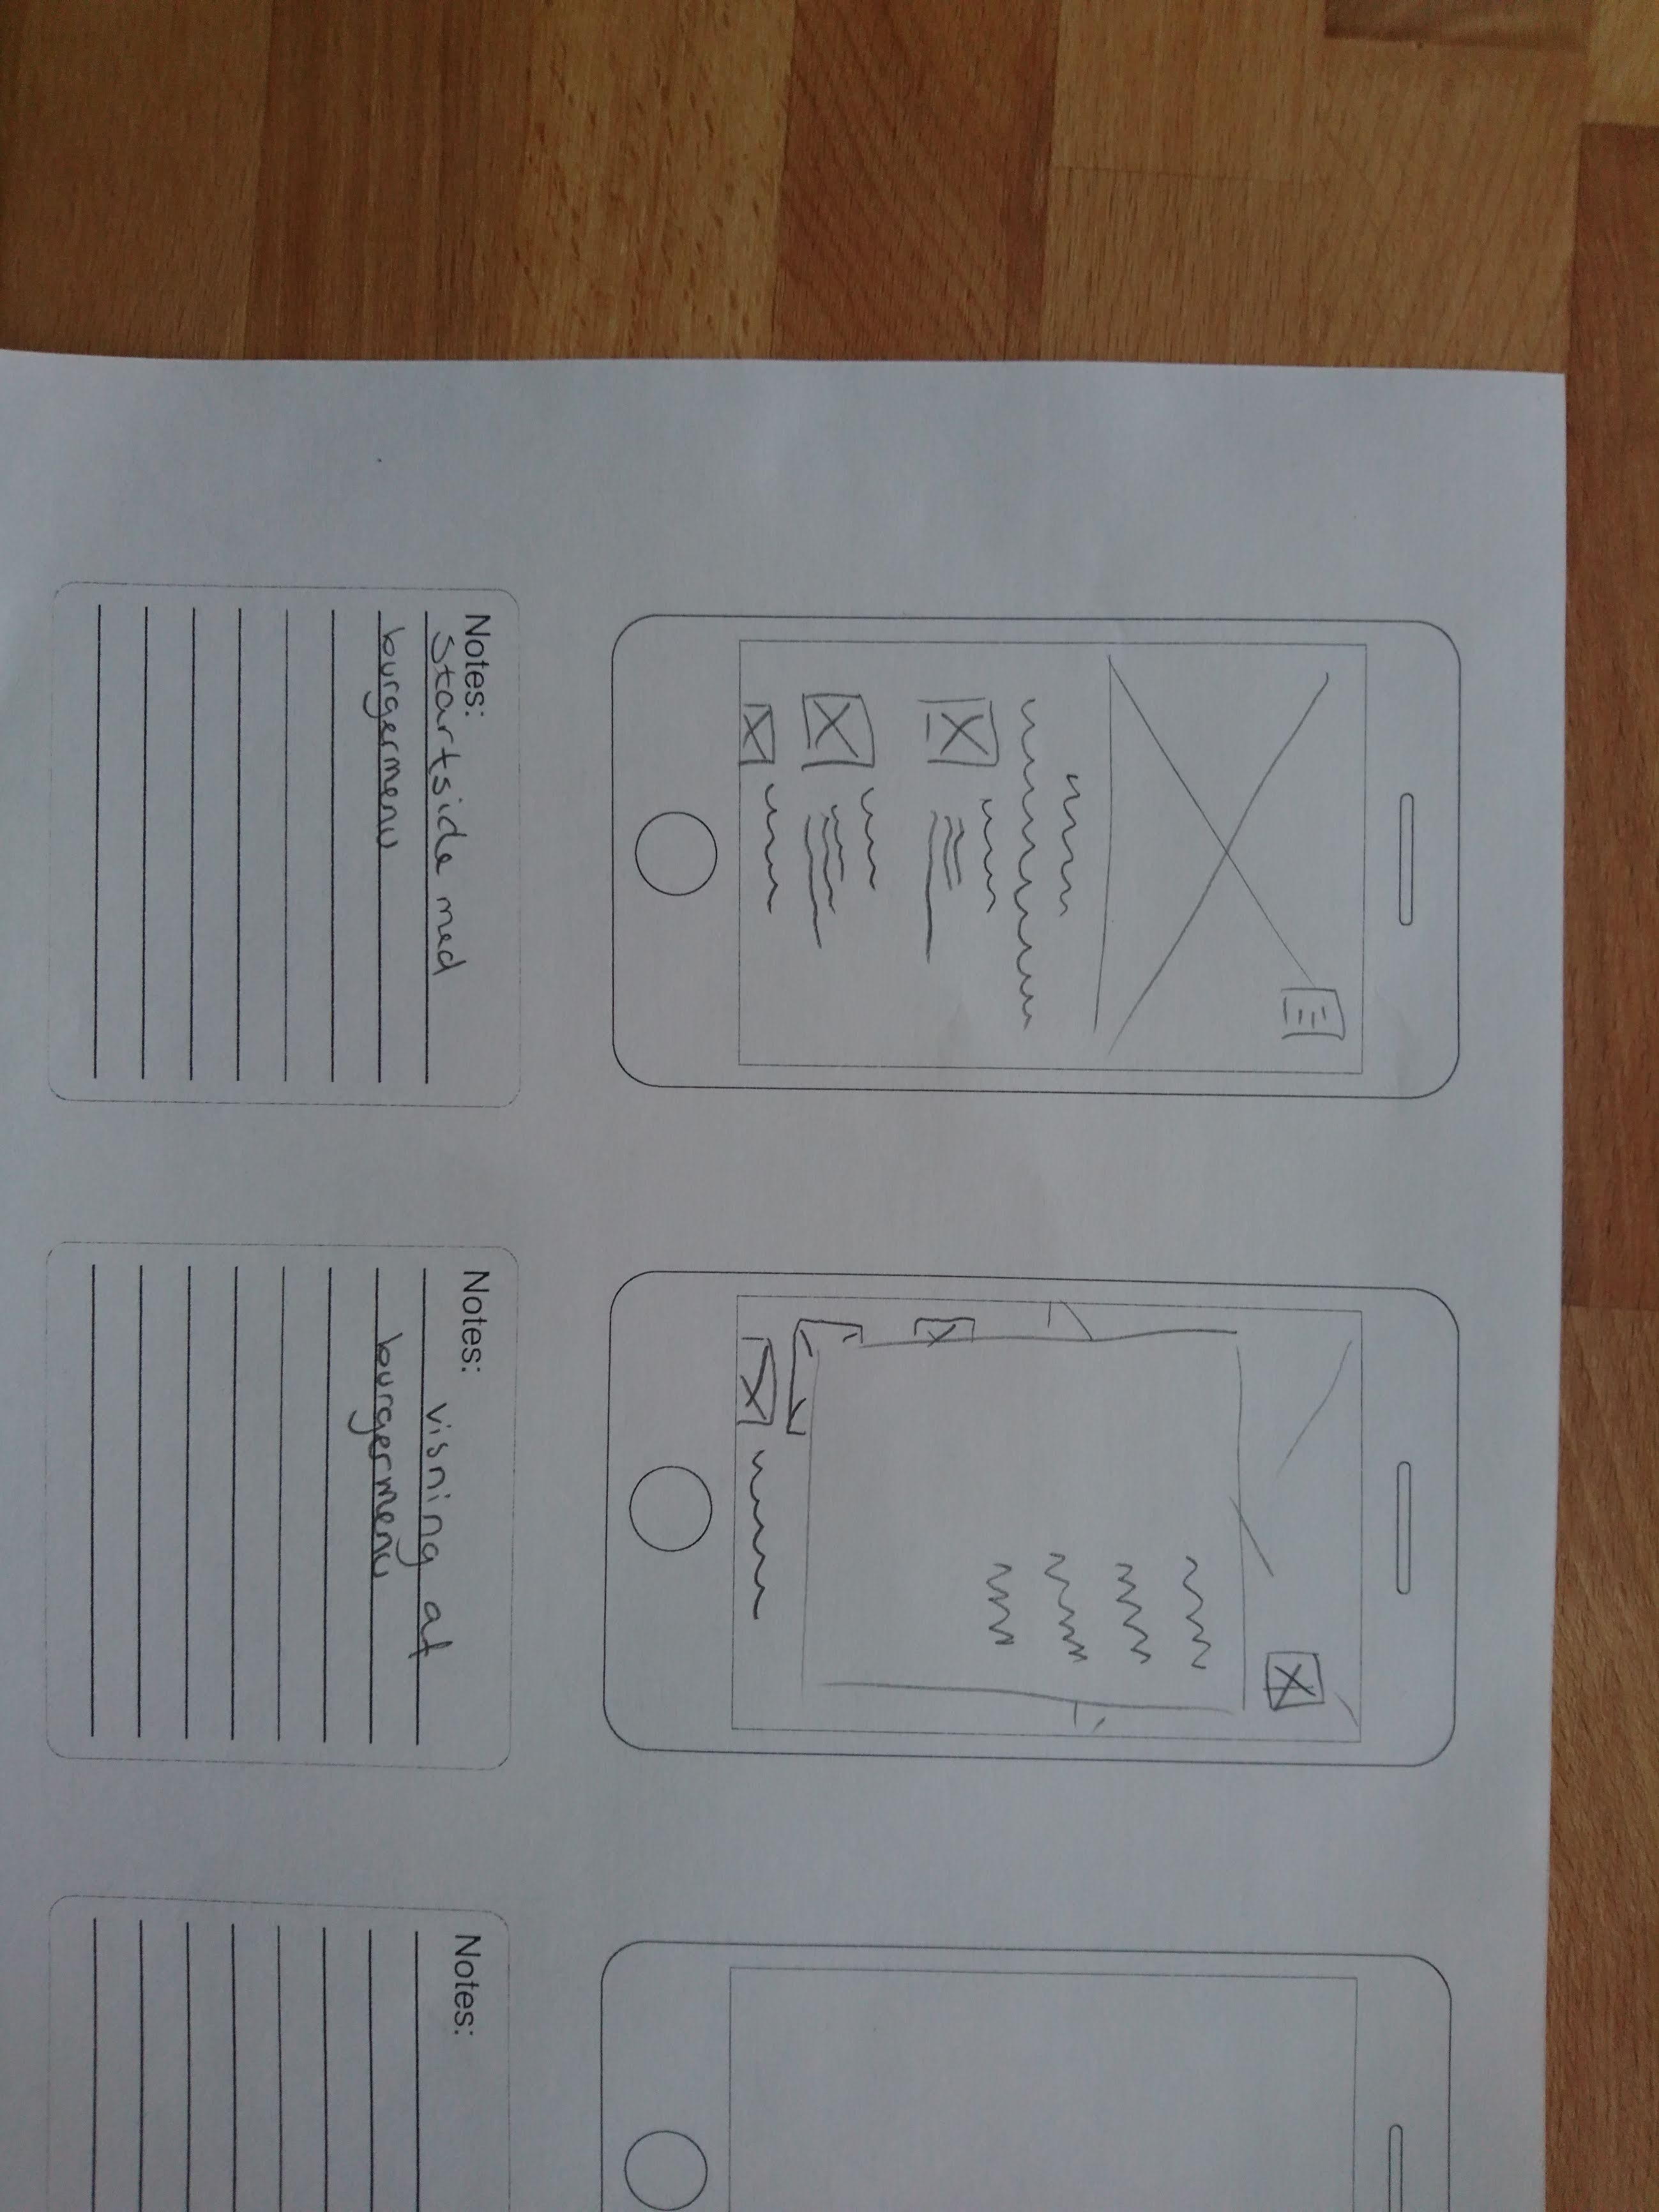 Notes:
Startside med
burgermenu
Notes:
visning af
burgermenu
Notes: